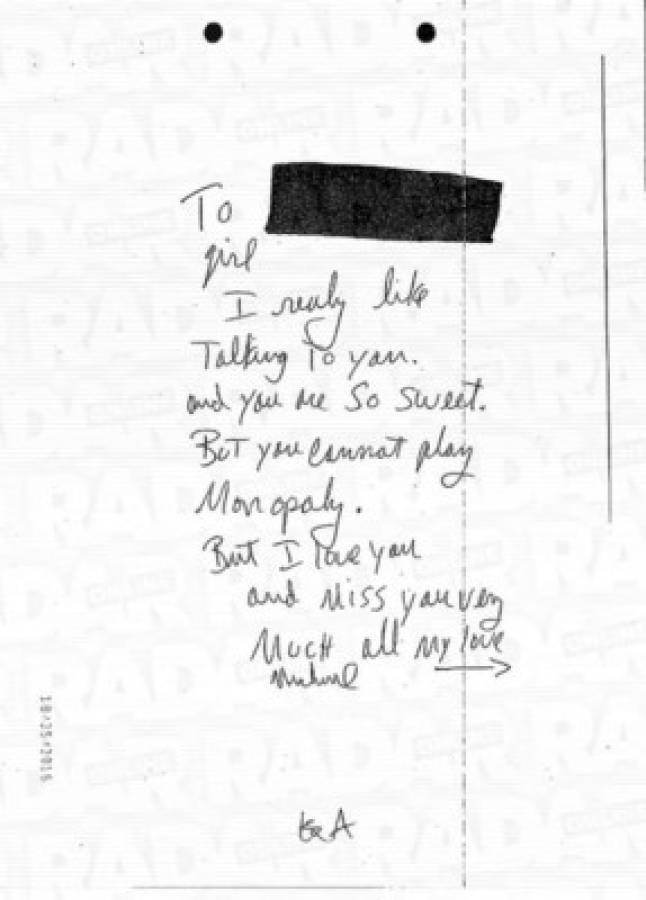 To
girl
I realy like
Talking To you.
and you are So Sweet.
But you cannot play
Monopaly.
But I love you
and Miss you very
MucH all my love
Michael
10/25/2016